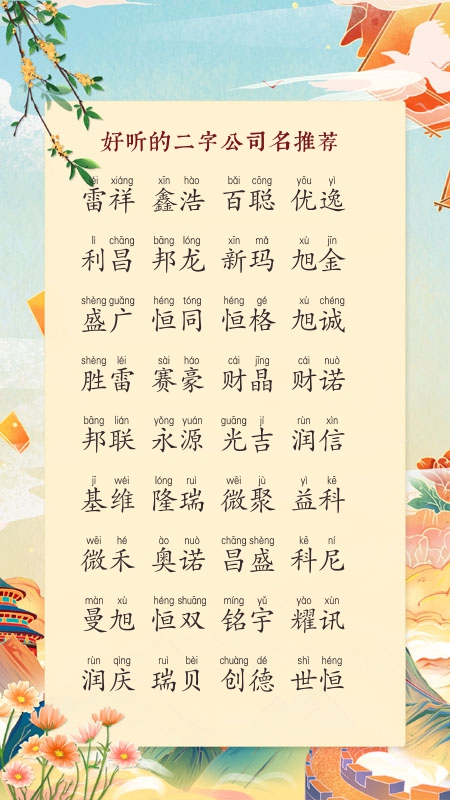 好听的二字公司名推荐
léi xiáng xīn hào bǎi cōng yōu yì
雷祥 鑫浩 百聪 优逸
lì chāng bāng lóng xīn mǎ xù jīn
利昌 邦龙 新玛 旭金
shèng guǎng héng tóng héng gé xù chéng
盛广 恒同 恒格 旭诚
shèng léi sài háo cái jīng cái nuò
胜雷 赛豪 财晶 财诺
bāng lián yǒng yuán guāng jí rùn xìn
邦联 永源 光吉 润信
jī wéi lóng ruì wēi jù yì kē
基维 隆瑞 微聚 益科
wēi hé ào nuò chāng shèng kē ní
微禾 奥诺 昌盛 科尼
màn xù héng shuāng míng yǔ yào xùn
曼旭 恒双 铭宇 耀讯
rùn qìng ruì bèi chuàng dé shì héng
润庆 瑞贝 创德 世恒